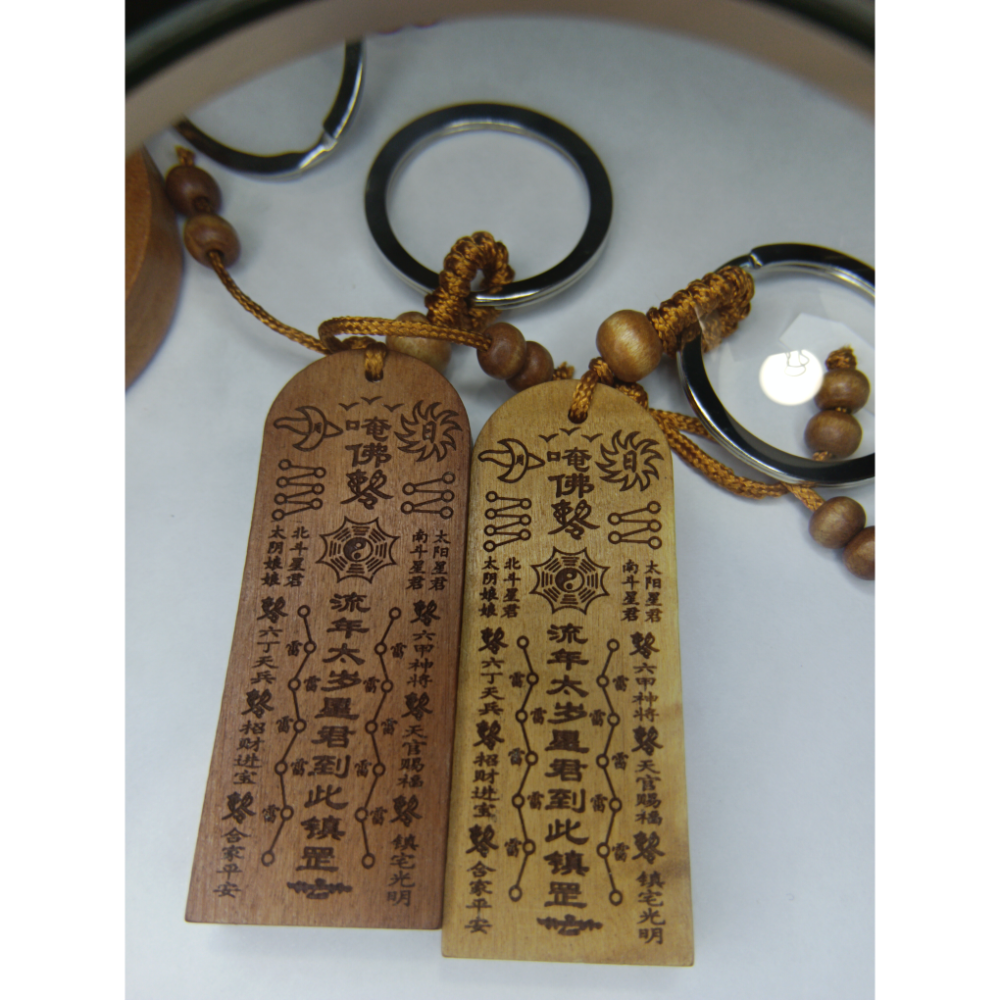 月
日
唵佛
太阳星君
南斗星君
北斗星君
太阴娘娘
六甲神将
天官赐福
镇宅光明
雷雷雷雷雷
流年太岁星君到此镇罡
雷雷雷雷雷
六丁天兵
招财进宝
合家平安
月
日
唵佛
太阳星君
南斗星君
北斗星君
太阴娘娘
六甲神将
天官赐福
镇宅光明
雷雷雷雷雷
流年太岁星君到此镇罡
雷雷雷雷雷
六丁天兵
招财进宝
合家平安